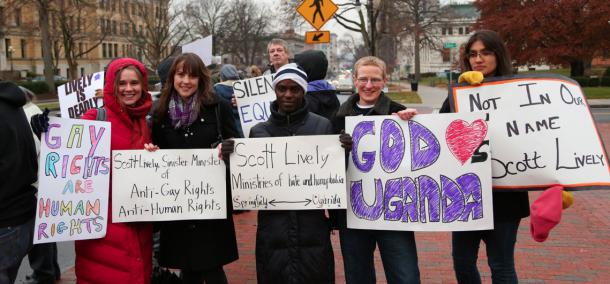 LIVELY
IS DEADLY
GAY
RIGHTS
ARE
HUMAN
RIGHTS
Scott Lively, Sinister Minister
of
Anti-Gay Rights
Anti-Human Rights
EQUA
Scott Lively
Ministries of hate and homophobia
Springfield Uganda
GOD
UGANDA
Not In Our
Name
Scott Lively